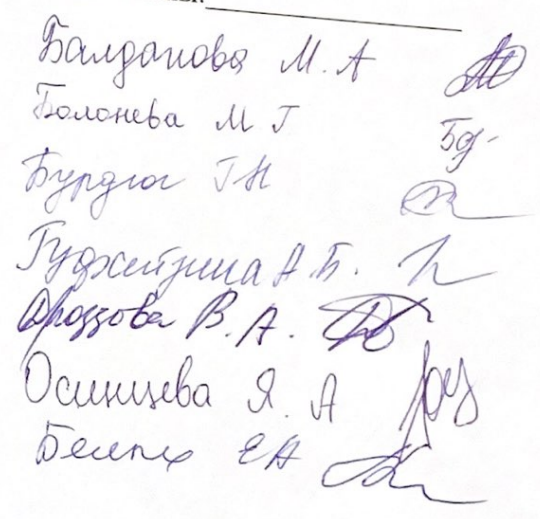 Балданова М. А
Болонева М Г
Бурдюг Г Н
А. Б.
Дроздова В. А.
Осинцева Я. А
Белых Е А